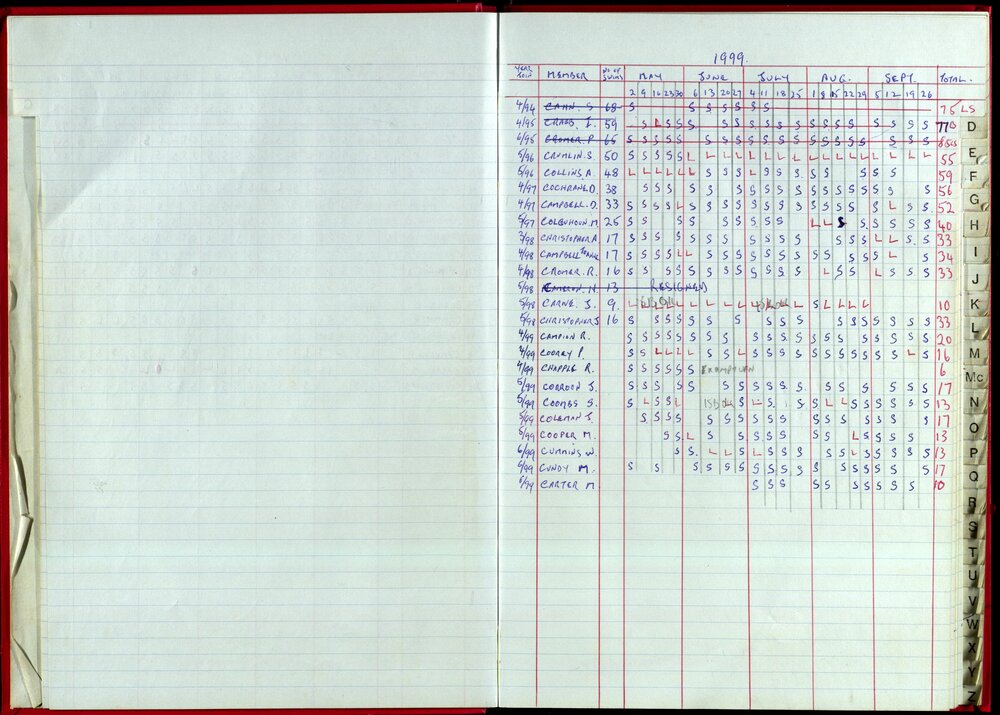 1999.
YEAR JOIN MEMBER NO OF SWIMS MAY JUNE JULY AUG. SEPT. TOTAL.
2 9 16 23 30 6 13 20 27 4 11 18 25 1 8 15 22 29 5 12 19 26
4/94 CAHN. S 68 S S S S S S S 75 LS
4/95 CRABB. I. 59 S L S S S S S S S S S S S S S S S S S S S 77 D
6/95 CROMER. P 65 S S S S S S S S S S S S S S S S S S S S S 85 E
5/96 CRUMLIN. S. 50 S S S S S L L L L L L L L L L L L L L L L L 55
5/96 COLLINS. A. 48 L L L L L L S S S L S S S S S S S S 59 F
4/97 COCHRANE. D. 38 S S S S S S S S S S S S S S S S S S 56
4/97 CAMPBELL. D. 33 S S S S L S S S S S S S S S S S S S S L S S 52 G
5/97 COLQUHOUN. M. 25 S S S S S S S S S S L L S S S S S S S 40 H
3/98 CHRISTOPHER A 17 S S S S S S S S S S S S S S L L S S 33
4/98 CAMPBELL 17 S S S L L S S S S S S S S S S S S L S 34 I
4/98 CROMER. R. 16 S S S S S S S S S S S S L S S L S S S 33
5/98 CAMERON. N. 13 RESIGNED J
5/98 CARNE. J. 9. L L L L L L L L S L L L L 10 K
5/98 CHRISTOPHER S 16 S S S S S S S S S S S S S S S S S 33 L
4/99 CAMPION R. S S S S S S S S S S S S S S S S S S S S 20
4/99 COOREY P. S S L L L L S S L S S S S S S S S S S S L S 16 M
4/99 CHAPPLE R. S S S S S S 6
5/99 CORROON J. S S S S S S S S S S S S S S S S S 17 Mc
5/99 COOMBS S. S L S L S S S L L S S S S S S 13 N
5/99 COLEMAN J. S S S S S S S S S S S S S S S S S 17
5/99 COOPER M. S S L S S S S S S S L S S S S 13 O
6/99 CUMMINS W S S L L S L S S S S S L S S S S 13 P
6/99 CUNDY M. S S S S S S S S S S S S S S S S S 17
CARTER M S S S S S S S S S S 10 Q
R
S
T
U
V
W
X
Y
Z